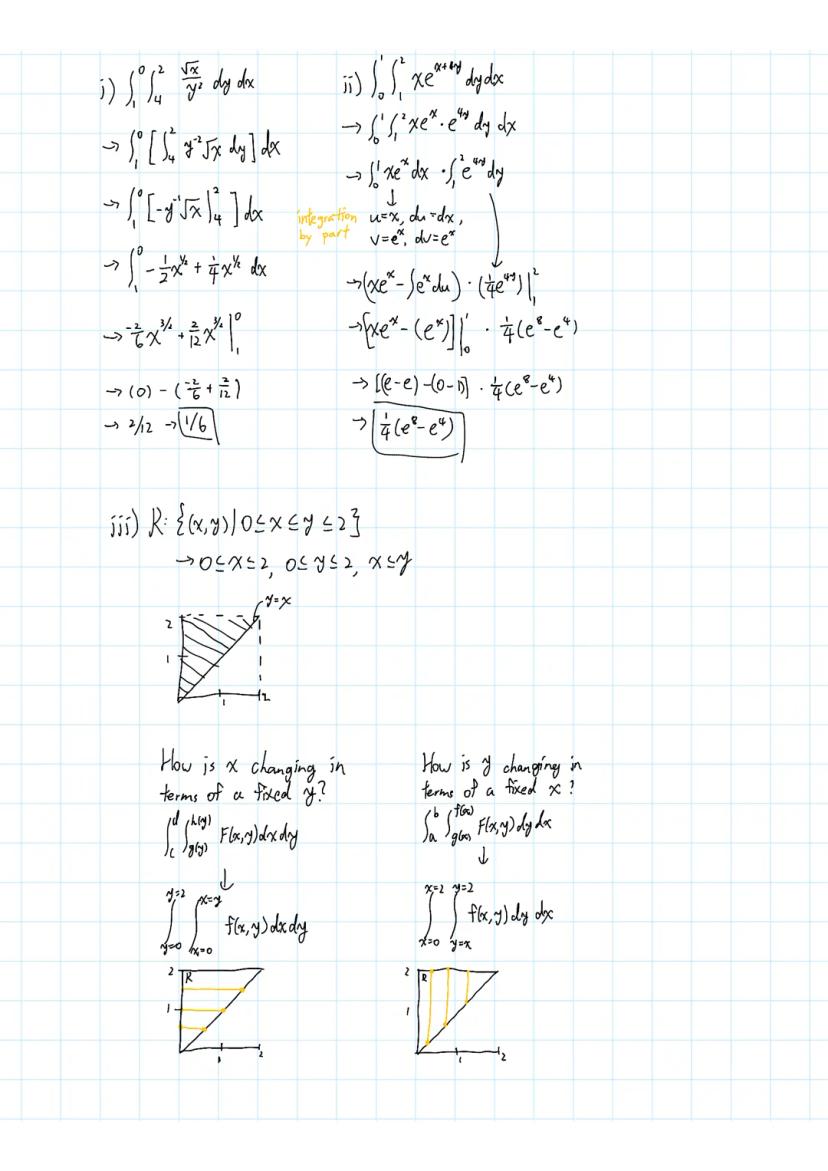 i) ∫₁⁰ ∫₄² √x/y² dy dx
→ ∫₁⁰ [∫₄² y⁻²√x dy] dx
→ ∫₁⁰ [-y⁻¹√x |₄² ] dx
→ ∫₁⁰ -1/2 x^(1/2) + 1/4 x^(1/2) dx
→ -2/6 x^(3/2) + 2/12 x^(3/2) |₁⁰
→ (0) - (-2/6 + 2/12)
→ 2/12 → 1/6
ii) ∫₀¹ ∫₁² xe^(x+4y) dy dx
→ ∫₀¹ ∫₁² xeˣ · e^(4y) dy dx
→ ∫₀¹ xeˣ dx · ∫₁² e^(4y) dy
↓
integration by part
u=x, du=dx,
v=eˣ, dv=eˣ
→ (xeˣ - ∫eˣ du) · (1/4 e^(4y)) |₁²
→ [xeˣ - (eˣ)] |₀¹ · 1/4 (e⁸ - e⁴)
→ [(e-e) - (0-1)] · 1/4 (e⁸ - e⁴)
→ 1/4 (e⁸ - e⁴)
iii) R: {(x,y) | 0 ≤ x ≤ y ≤ 2}
→ 0 ≤ x ≤ 2, 0 ≤ y ≤ 2, x ≤ y
y=x
2
1
1 2
How is x changing in
terms of a fixed y?
∫_c^d ∫_g(y)^h(y) F(x,y) dx dy
↓
∫_y=0^y=2 ∫_x=0^x=y f(x,y) dx dy
2 R
1
1 2
How is y changing in
terms of a fixed x?
∫_a^b ∫_g(x)^f(x) F(x,y) dy dx
↓
∫_x=0^x=2 ∫_y=x^y=2 f(x,y) dy dx
2 R
1
1 2